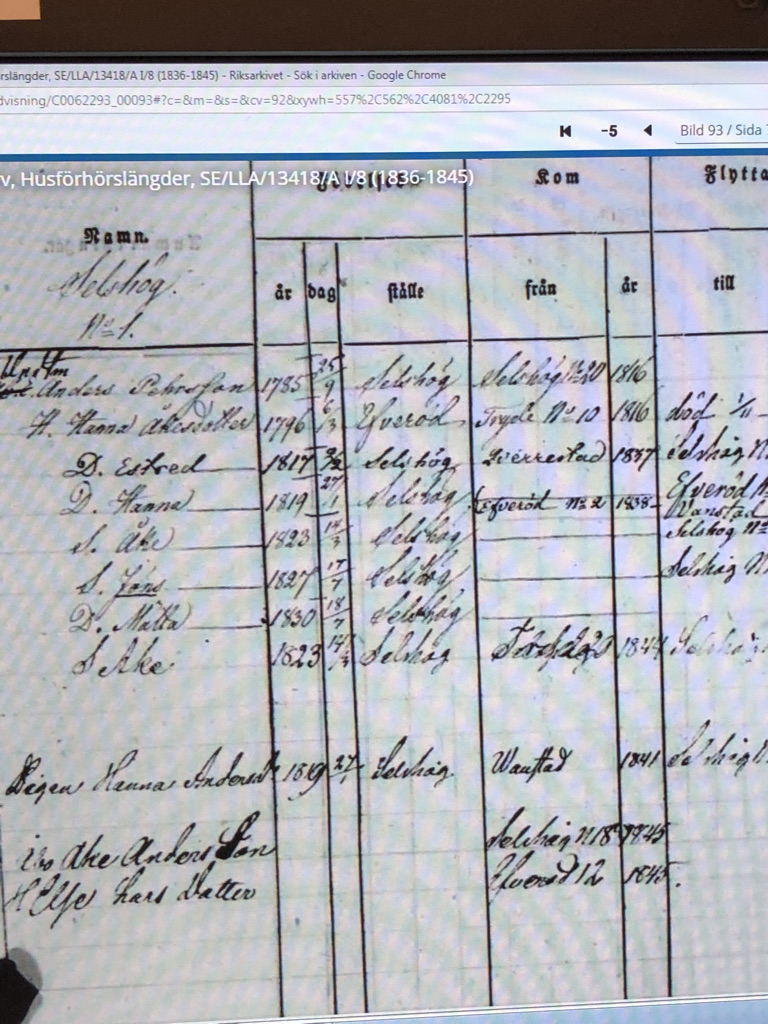 rslängder, SE/LLA/13418/A I/8 (1836-1845) - Riksarkivet - Sök i arkiven - Google Chrome
dvisning/C0062293_00093#?c=&m=&s=&cv=92&xywh=557%2C562%2C4081%2C2295
-5 Bild 93 / Sida 7
v, Husförhörslängder, SE/LLA/13418/A I/8 (1836-1845)
Kom Flytta
Namn.
Selshög.
år dag ställe från år till
No 1.
Anders Pehrsson 1785 25/9 Selshög Selshög No 20 1816
H. Hanna Åkesdotter 1796 6/13 Efveröd Tryde No 10 1816 död 1/11
D. Estred 1817 Selshög Sverrestad 1837 Selshög N
D. Hanna 1819 27/1 Selshög Efveröd No 2 1838 Efveröd N
Vanstad
S. Åke 1823 14/3 Selshög Selshög No
S. Jöns 1827 17/7 Selshög Selshög N
D. Mätta 1830 18/7 Selshög
S Ake 1823 14/3 Selshög 1844 Selshög
Pigan Hanna Andersdr 1819 27/1 Selshög Wanstad 1841 Selshög N
Åbo Ake Anders Son Selshög N 18 1845
H Elje Lars Datter Efveröd 12 1845.